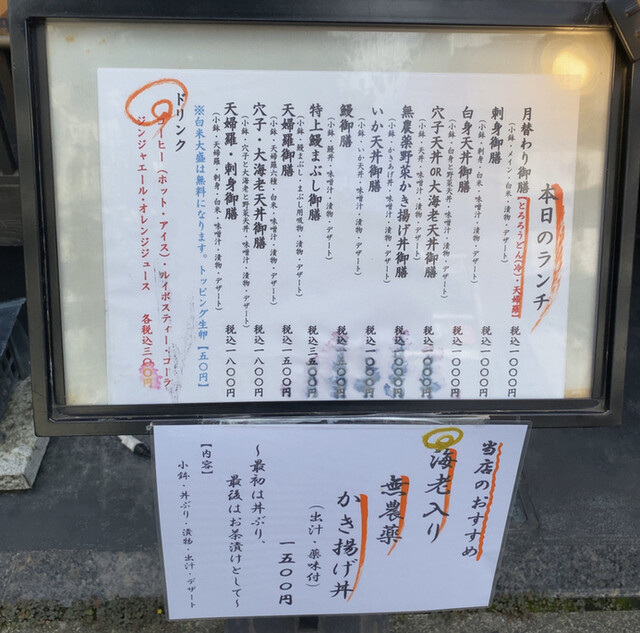 本日のランチ
月替わり御膳【とろろうどん(冷)・天婦羅】 税込一〇〇〇円
(小鉢・メイン・白米・漬物・デザート)
刺身御膳 税込一〇〇〇円
(小鉢・刺身・白米・味噌汁・漬物・デザート)
白身天丼御膳 税込一〇〇〇円
(小鉢・白身と野菜天丼・味噌汁・漬物・デザート)
穴子天丼OR大海老天丼御膳 税込一〇〇〇円
(小鉢・天丼・味噌汁・漬物・デザート)
無農薬野菜かき揚げ丼御膳 税込一〇〇〇円
(小鉢・かきあげ丼・味噌汁・漬物・デザート)
いか天丼御膳 税込一〇〇〇円
(小鉢・いか天丼・味噌汁・漬物・デザート)
鰻御膳
(小鉢・鰻丼・味噌汁・漬物・デザート)
特上鰻まぶし御膳 税込三五〇〇円
(小鉢・鰻まぶし・まぶし用吸物・漬物・デザート)
天婦羅御膳 税込一五〇〇円
(小鉢・天婦羅六種・白米・味噌汁・漬物・デザート)
穴子・大海老天丼御膳 税込一八〇〇円
(小鉢・穴子と大海老と野菜天丼・味噌汁・漬物・デザート)
天婦羅・刺身御膳 税込一八〇〇円
(小鉢・天婦羅・刺身・白米・味噌汁・漬物・デザート)
※白米大盛は無料になります。トッピング生卵【五〇円】
ドリンク
コーヒー(ホット・アイス)・ルイボスティー・コーラ
ジンジャエール・オレンジジュース 各税込三〇〇円
当店のおすすめ
海老入り
無農薬
かき揚げ丼
(出汁・薬味付)
一五〇〇円
～最初は丼ぶり、
最後はお茶漬けとして～
【内容】
小鉢・丼ぶり・漬物・出汁・デザート